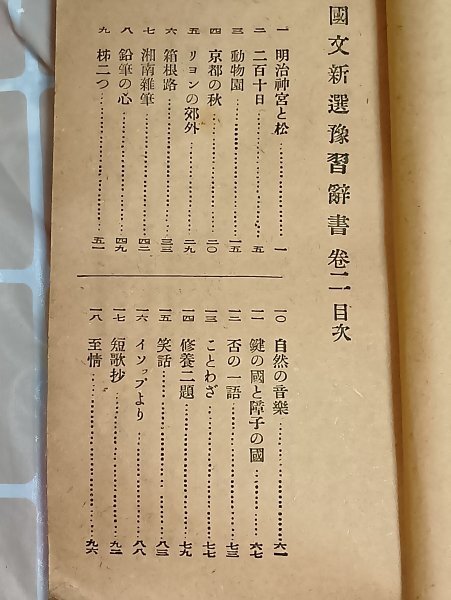 國文新選豫習辭書 卷二 目次
一 明治神宮と松………一
二 二百十日………五
三 動物園………一五
四 京都の秋………二〇
五 リヨンの郊外………二九
六 箱根路………三三
七 湘南雜筆………四二
八 鉛筆の心………四九
九 柿二つ………五一
一〇 自然の音樂………六一
一一 鍵の國と障子の國………六七
一二 否の一語………七三
一三 ことわざ………七七
一四 修養二題………七九
一五 笑話………八三
一六 イソップより………八八
一七 短歌抄………九二
一八 至情………九六